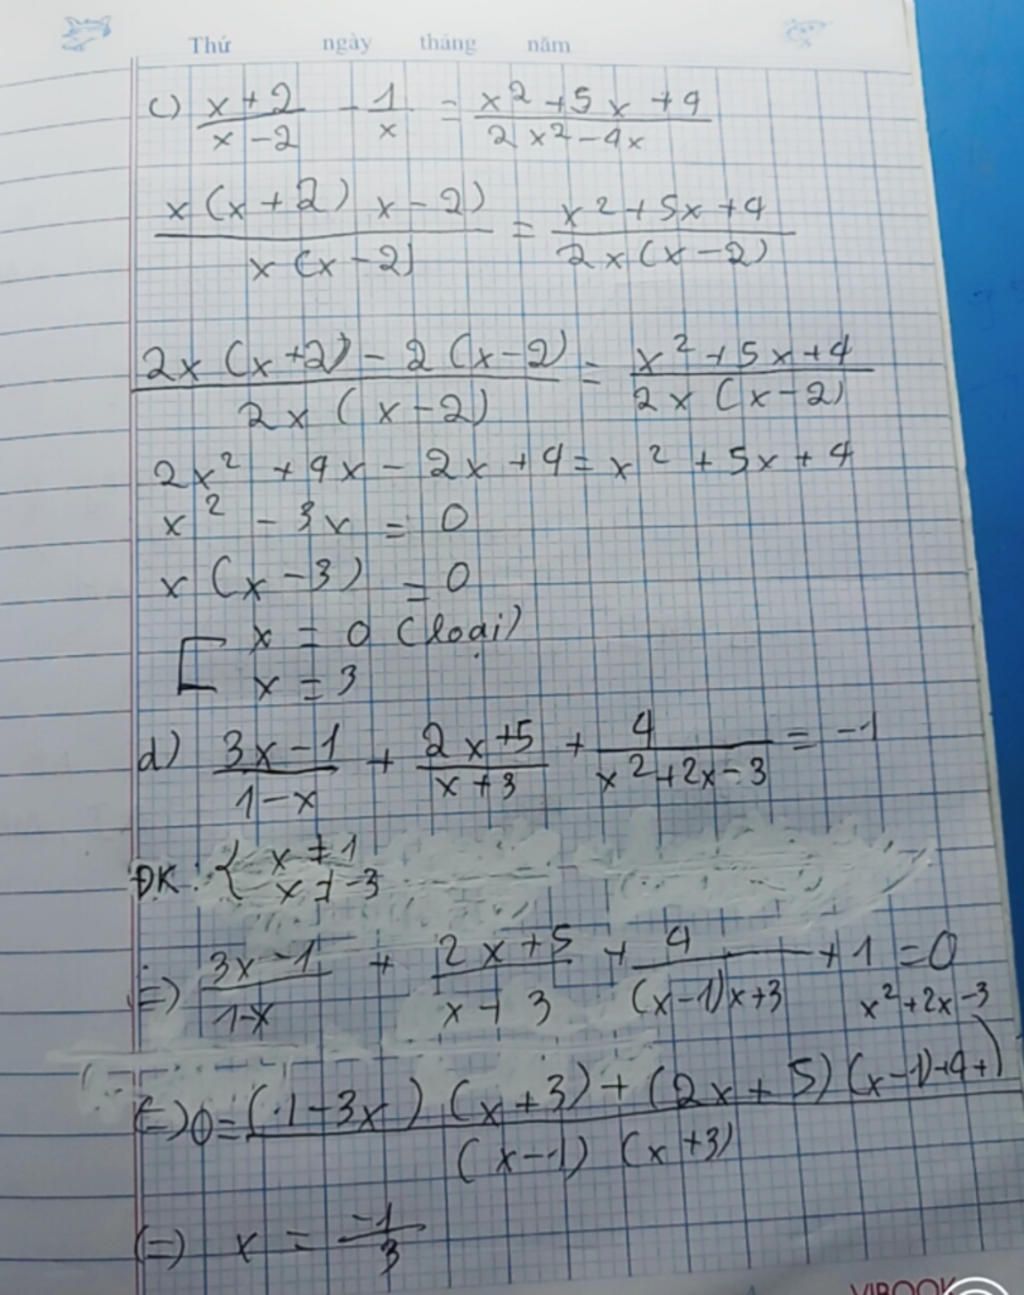 Thứ ngày tháng năm
c) \frac{x+2}{x-2} - \frac{1}{x} = \frac{x^2+5x+4}{2x^2-4x}
\frac{x(x+2) x-2)}{x(x-2)} = \frac{x^2+5x+4}{2x(x-2)}
\frac{2x(x+2)-2(x-2)}{2x(x-2)} = \frac{x^2+5x+4}{2x(x-2)}
2x^2 + 4x - 2x + 4 = x^2 + 5x + 4
x^2 - 3x = 0
x(x-3) = 0
[ x = 0 (loại)
x = 3
d) \frac{3x-1}{1-x} + \frac{2x+5}{x+3} + \frac{4}{x^2+2x-3} = -1
ĐK: { x ≠ 1
x ≠ -3
(=) \frac{3x-1}{1-x} + \frac{2x+5}{x+3} + \frac{4}{(x-1)x+3} + 1 = 0
x^2+2x-3
(=) 0 = \frac{(1-3x)(x+3)+(2x+5)(x-1)+4+)}{(x-1)(x+3)}
(=) x = \frac{-1}{3}
VIBOOK